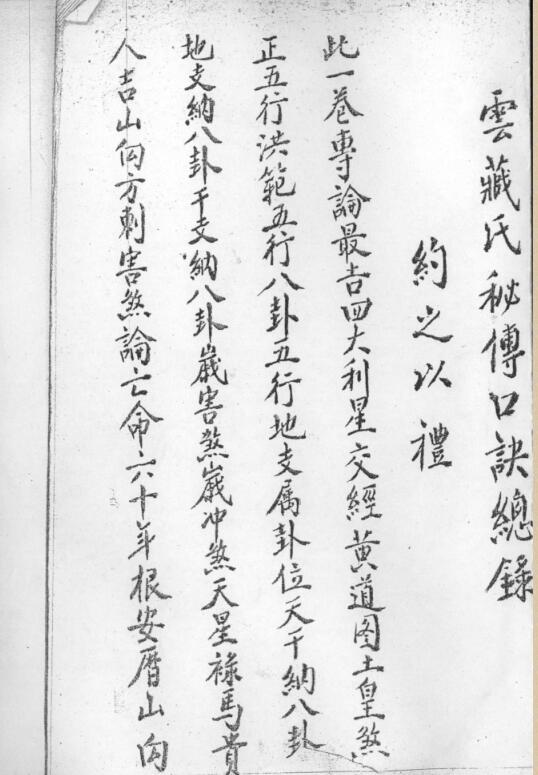 雲藏氏秘傳口訣總錄
約之以禮
此一卷專論最吉四大利星交經黃道图土皇煞
正五行洪範五行八卦五行地支属卦位天干納八卦
地支納八卦干支納八卦歲害煞歲冲煞天星祿馬貴
人吉山向方刺害煞論亡命六十年根安曆山向